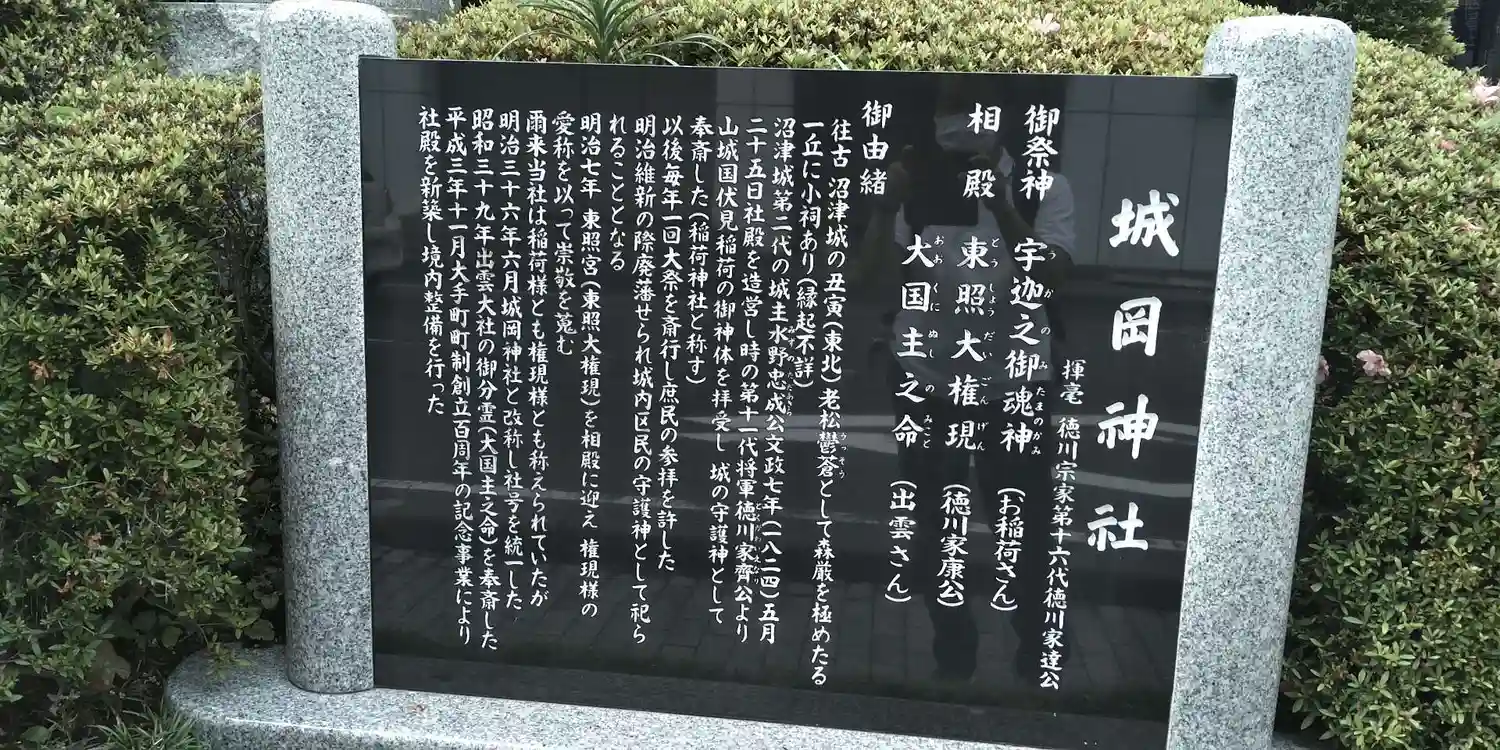 城岡神社
揮毫 徳川宗家第十六代徳川家達公
御祭神 宇迦之御魂神 (お稲荷さん)
うかのみたまのかみ
相殿 東照大権現 (徳川家康公)
とうしょうだいごんげん
大国主之命 (出雲さん)
おおくにぬしのみこと
御由緒
往古 沼津城の丑寅(東北)老松鬱蒼として森厳を極めたる
うっそう
一丘に小祠あり(縁起不詳)
沼津城第二代の城主水野忠成公文政七年(一八二四)五月
みずのただあきら
二十五日社殿を造営し時の第十一代将軍徳川家齊公より
とくがわいえなり
山城国伏見稲荷の御神体を拝受し 城の守護神として
奉斎した(稲荷神社と称す)
以後毎年一回大祭を斎行し庶民の参拝を許した
明治維新の際廃藩せられ城内区民の守護神として祀ら
れることとなる
明治七年 東照宮(東照大権現)を相殿に迎え 権現様の
愛称を以って崇敬を蒐む
爾来当社は稲荷様とも権現様とも称えられていたが
明治三十六年六月城岡神社と改称し社号を統一した
昭和三十九年出雲大社の御分霊(大国主之命)を奉斎した
平成三年十一月大手町町制創立百周年の記念事業により
社殿を新築し境内整備を行った